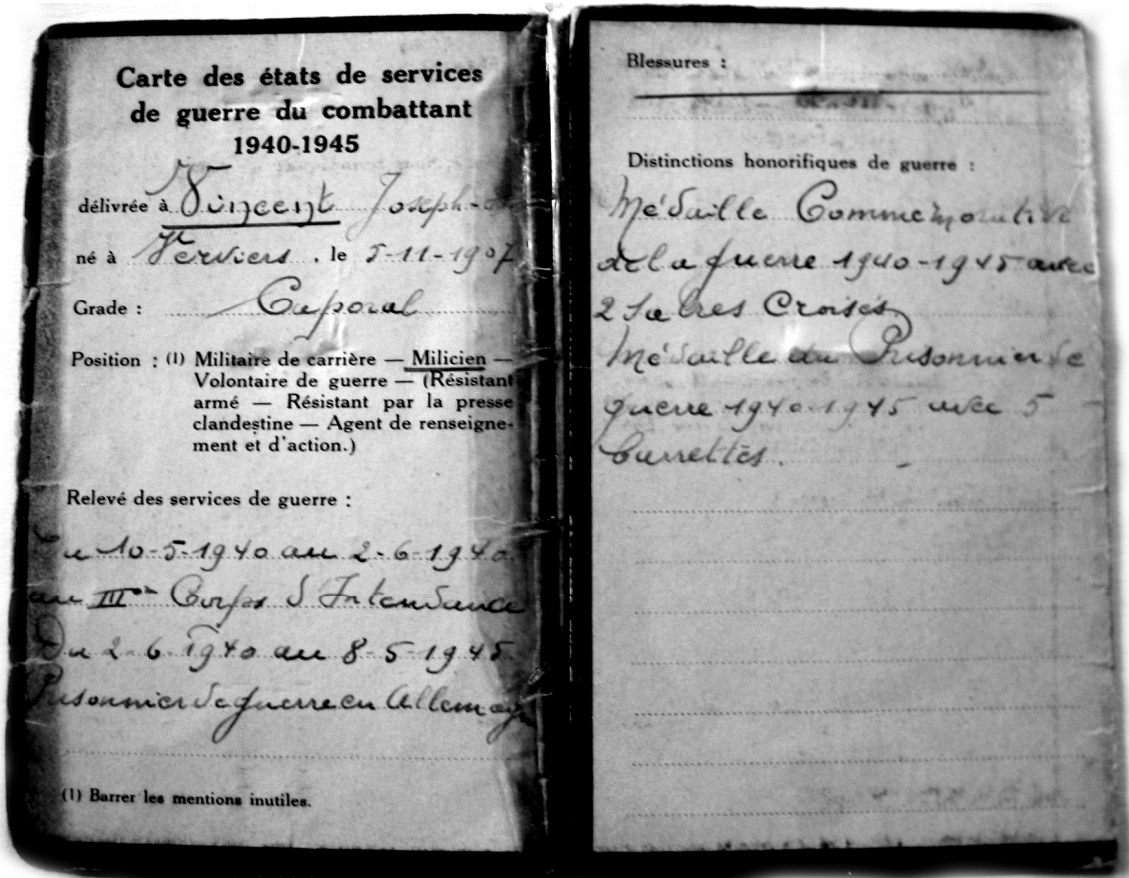 Carte des états de services
de guerre du combattant
1940-1945
délivrée à Vincent Joseph-
né à Verviers, le 5-11-1907
Grade : Caporal
Position : (1) Militaire de carrière — Milicien —
Volontaire de guerre — (Résistant
armé — Résistant par la presse
clandestine — Agent de renseigne-
ment et d'action.)
Relevé des services de guerre :
Du 10-5-1940 au 2-6-1940.
au III Corps d'Intendance
Du 2-6-1940 au 8-5-1945.
Prisonnier de guerre en Allemagne
(1) Barrer les mentions inutiles.
Blessures :
Distinctions honorifiques de guerre :
Médaille Commémorative
de la guerre 1940-1945 avec
2 Sabres Croisés
Médaille du Prisonnier de
guerre 1940-1945 avec 5
barrettes.